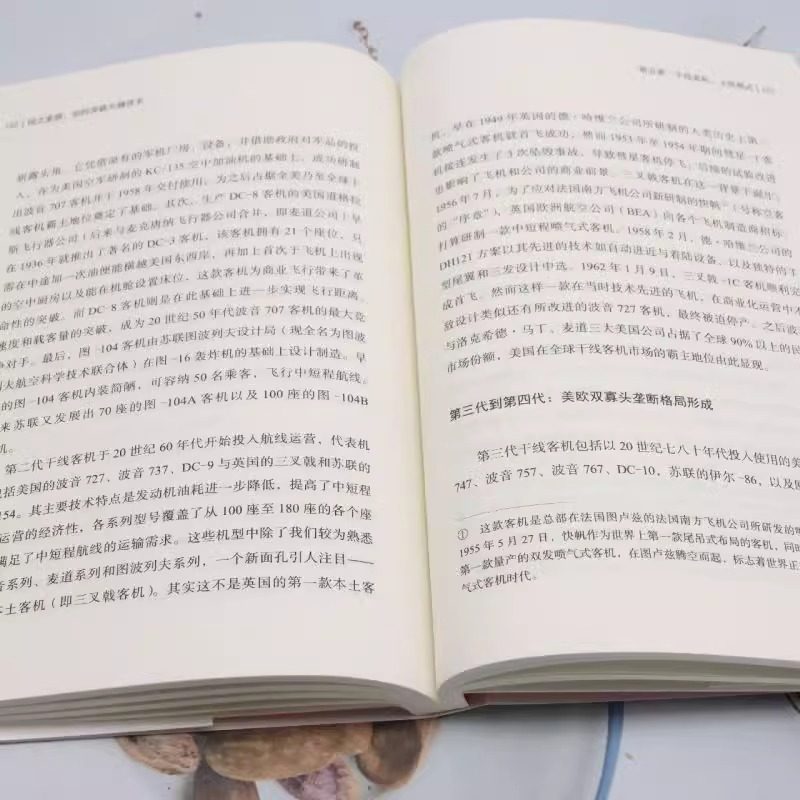 崭露头角。它凭借深有的军机厂房、设备，并借助政府对军品的投
入，作为美国空军研制的 KC-135 空中加油机的基础上，成功研制
出波音 707 客机并于 1958 年交付使用，为之后占据全美乃至全球干
线客机霸主地位奠定了基础。其次，生产 DC-8 客机的美国道格拉
斯飞行器公司（后来与麦克唐纳飞行器公司合并，即麦道公司）早
在 1936 年就推出了著名的 DC-3 客机，该客机拥有 21 个座位，只
需在中途加一次油便能横越美国东西岸，再加上首次于飞机上出现
的空中厨房以及能在机舱设置床位，这款客机为商业飞行带来了革
命性的突破。而 DC-8 客机则是在此基础上进一步实现飞行距离、
速度和载客量的突破，成为 20 世纪 50 年代波音 707 客机的最大竞
争对手。最后，图-104 客机由苏联图波列夫设计局（现全名为图波
列夫航空科学技术联合体）在图-16 轰炸机的基础上设计制造。早
的图-104 客机内装简陋，可容纳 50 名乘客，飞行中短程航线。
来苏联又发展出 70 座的图-104A 客机以及 100 座的图-104B
机。
第二代干线客机于 20 世纪 60 年代开始投入航线运营，代表机
包括美国的波音 727、波音 737、DC-9 与英国的三叉戟和苏联的
154。其主要技术特点是发动机油耗进一步降低，提高了中短程
运营的经济性，各系列型号覆盖了从 100 座至 180 座的各个座
满足了中短程航线的运输需求。这些机型中除了我们较为熟悉
音系列、麦道系列和图波列夫系列，一个新面孔引人注目——
本土客机（即三叉戟客机）。其实这不是英国的第一款本土客
机，早在 1949 年英国的德·哈维兰公司所研制的人类历史上第
款喷气式客机就首飞成功，然而 1953 年至 1954 年期间彗星一客
机接连发生了 3 次坠毁事故，导致彗星客机停飞；后续的试验改
进影响了飞机和公司的商业前景。三叉戟客机在这一背景下诞生：
1956 年 7 月，为了应对法国南方飞机公司新研制的快帆（号称空客
的“序章”），英国欧洲航空公司（BEA）向各个飞机制造商招标
打算研制一款中短程喷气式客机。1958 年 2 月，德·哈维兰公司的
DH121 方案以其先进的技术如自动进近与着陆设备、以及独特的丁
型尾翼和三发设计中选。1962 年 1 月 9 日，三叉戟-1C 客机顺利完
成首飞。然而这样一款在当时技术先进的飞机，在商业化运营中不
敌设计类似还有所改进的波音 727 客机，最终被迫停产。之后波
与洛克希德·马丁、麦道三大美国公司占据了全球 90% 以上的民
市场份额，美国在全球干线客机市场的霸主地位由此显现。
第三代到第四代：美欧双寡头垄断格局形成
第三代干线客机包括以 20 世纪七八十年代投入使用的美
747、波音 757、波音 767、DC-10，苏联的伊尔-86，以及欧
① 这款客机是总部在法国图卢兹的法国南方飞机公司所研发的喷
1955 年 5 月 27 日，快帆作为世界上第一款尾吊式布局的客机，同
第一款量产的双发喷气式客机，在图卢兹腾空而起，标志着世界正
气式客机时代。